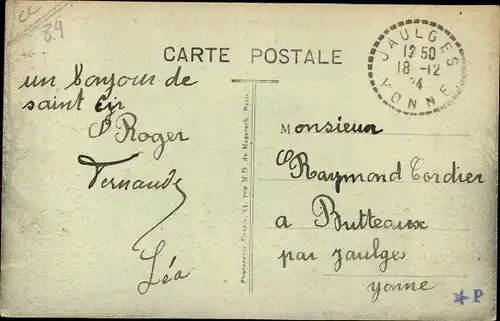 CL
89
CARTE POSTALE
JAULGES
12 50
18 -12
4
YONNE
un bonjour de
saint Cyr
Roger
Fernande
Léa
Monsieur
Raymond Cordier
a Butteaux
par Jaulges
yonne
Phototypie 11, rue N.D. de Nazareth, Paris
P